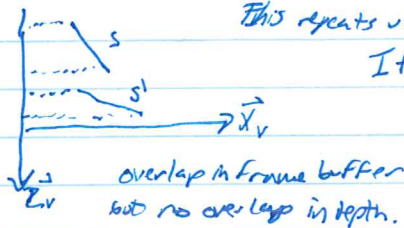 This repeats
It
S
S'
X_v
Z_v
overlap in frame buffer
but no overlap in depth.